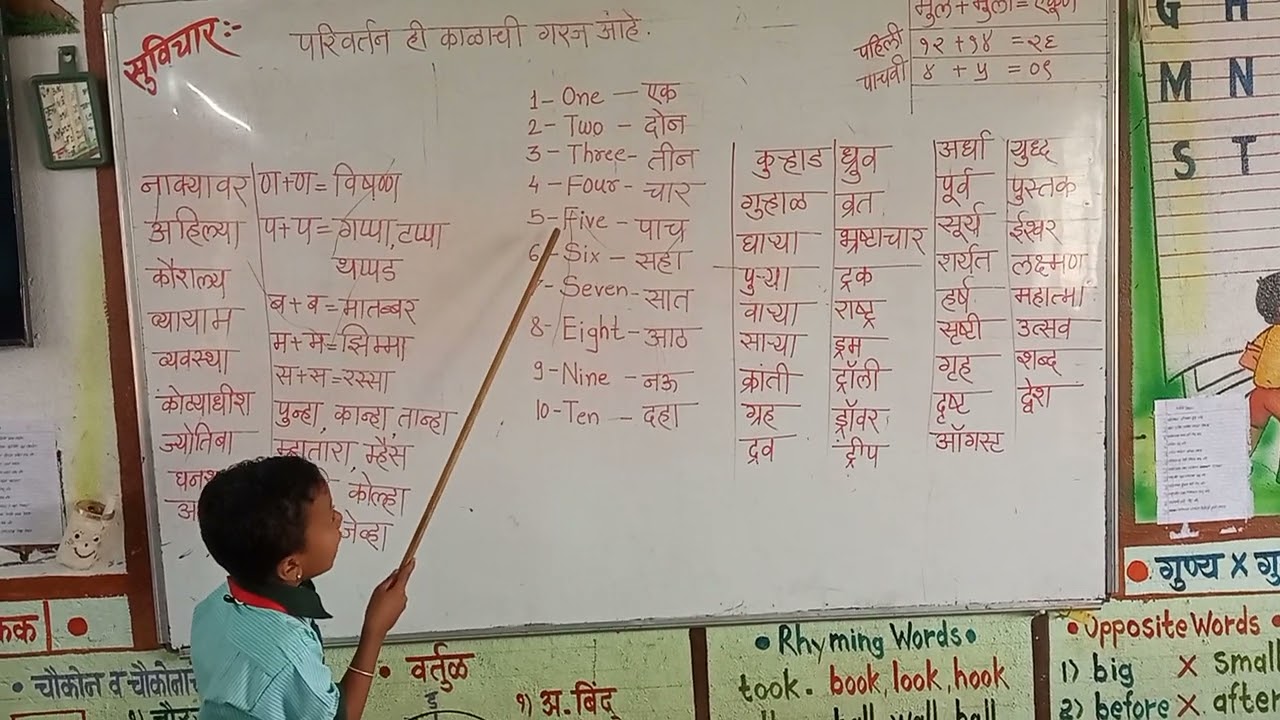 सुविचार:-
परिवर्तन ही काळाची गरज आहे.
मुले + मुली = एकूण
पहिली १२ + १४ = २६
पाचवी ४ + ५ = ०९
1 - One - एक
2 - Two - दोन
3 - Three - तीन
4 - Four - चार
5 - Five - पाच
6 - Six - सहा
- Seven - सात
8 - Eight - आठ
9 - Nine - नऊ
10 - Ten - दहा
नाक्यावर
अहिल्या
कौशल्य
व्यायाम
व्यवस्था
कोट्याधीश
ज्योतिबा
ण+ण= विषण्ण
प+प= गप्पा, टप्पा
थप्पड
ब+ब= मातब्बर
म+म= झिम्मा
स+स= रस्सा
पुन्हा, कान्हा, तान्हा
म्हातारा, म्हैस
कोल्हा
जेव्हा
कुऱ्हाड
गुऱ्हाळ
घाऱ्या
पुऱ्या
वाऱ्या
साऱ्या
क्रांती
ग्रह
द्रव
ध्रुव
व्रत
भ्रष्टाचार
ट्रक
राष्ट्र
ड्रम
ट्रॉली
ड्रॉवर
अर्धा
पूर्व
सूर्य
शर्यत
हर्ष
सृष्टी
गृह
दृष्ट
ऑगस्ट
युद्ध
पुस्तक
ईश्वर
लक्ष्मण
महात्मा
उत्सव
शब्द
द्वेश
G H
M N
S T
गुण्य X गु
• चौकोन व चौकोनाचे
• वर्तुळ
१) अ. बिंदू
• Rhyming Words •
took. book, look, hook
ball, wall, ball
• Opposite Words •
1) big X small
2) before X after